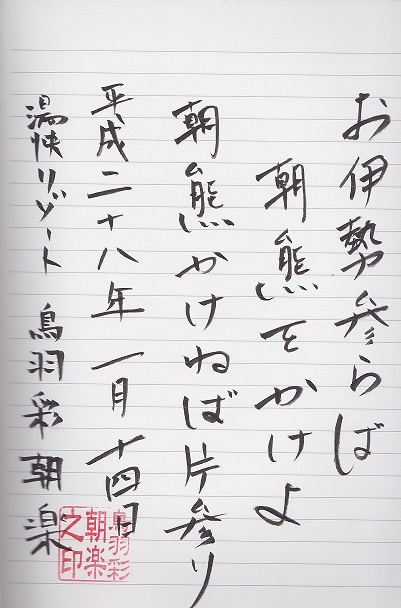 お伊勢参らば
朝熊をかけよ
朝熊かけねば片参り
平成二十八年 一月 十四日
湯快リゾート 鳥羽彩朝楽
鳥羽彩
朝楽
之印